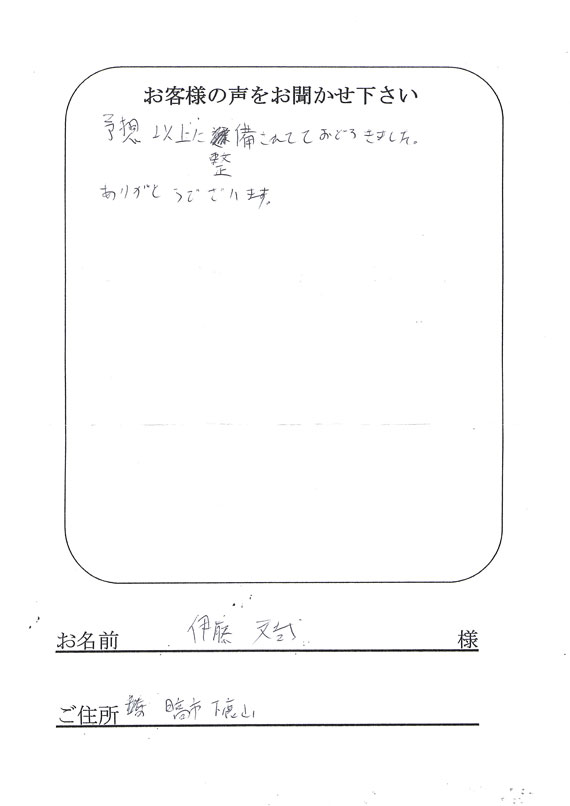 お客様の声をお聞かせ下さい
予想以上に整備されてておどろきました。
ありがとうございます。
お名前 伊藤 文哉 様
ご住所 日高市下鹿山